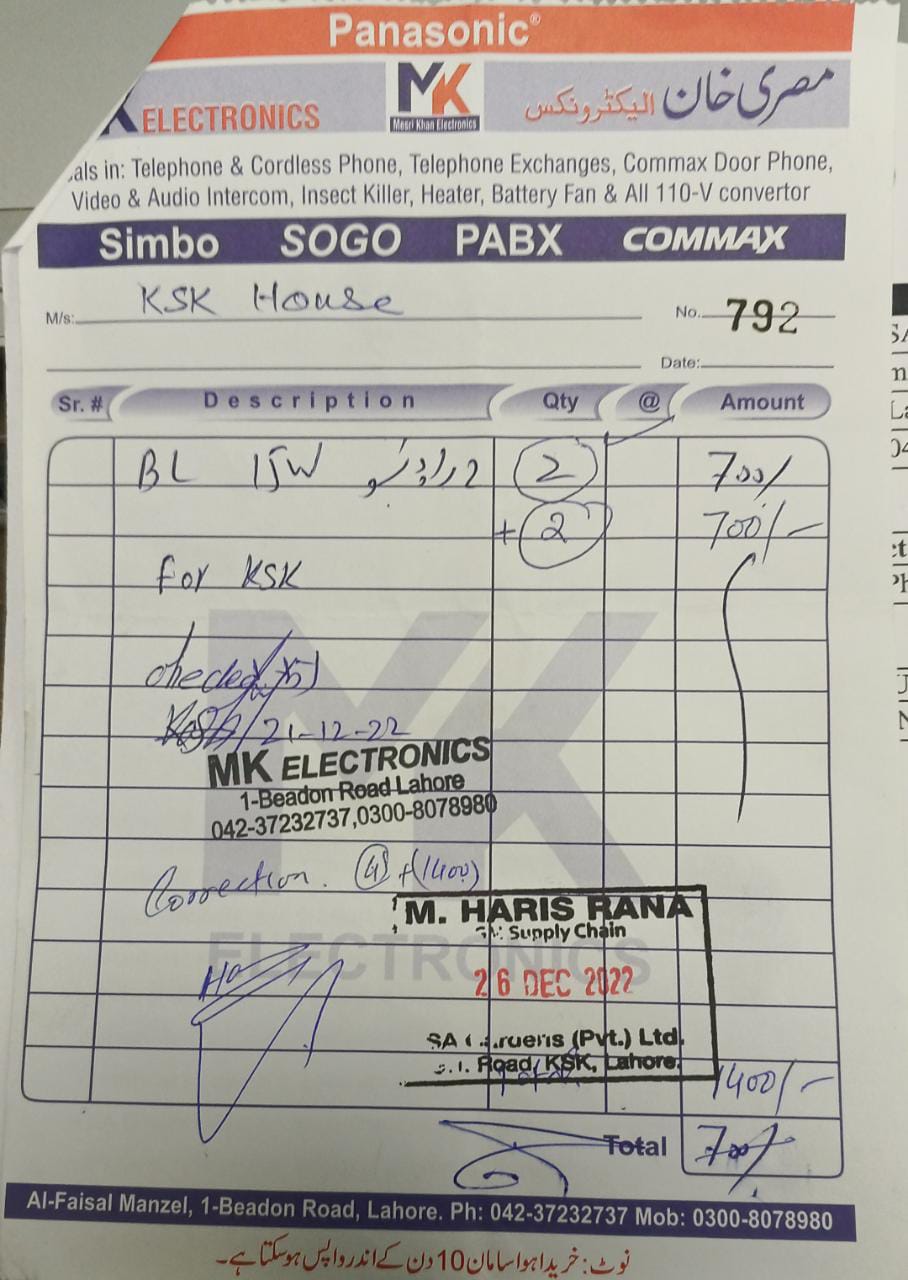 Panasonic®
ELECTRONICS
MK
Mesri Khan Electronics
مصری خان الیکٹرونکس
als in: Telephone & Cordless Phone, Telephone Exchanges, Commax Door Phone,
Video & Audio Intercom, Insect Killer, Heater, Battery Fan & All 110-V convertor
Simbo SOGO PABX COMMAX
M/s: KSK House
No. 792
Date:
Sr. # Description Qty @ Amount
BL 15W 2 700/
+ 2 700/-
for KSK
checked
21-12-22
MK ELECTRONICS
1-Beadon Road Lahore
042-37232737,0300-8078980
Correction. 4 + (1400)
M. HARIS RANA
Supply Chain
26 DEC 2022
(Pvt.) Ltd.
Road, KSK, Lahore.
1400/-
Total 700/
Al-Faisal Manzel, 1-Beadon Road, Lahore. Ph: 042-37232737 Mob: 0300-8078980
نوٹ: خریدا ہوا سامان 10 دن کے اندر واپس ہو سکتا ہے۔